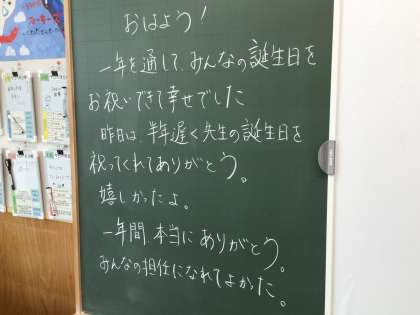 おはよう!
一年を通して、みんなの誕生日を
お祝いできて幸せでした
昨日は、半年遅く先生の誕生日を
祝ってくれてありがとう。
嬉しかったよ。
一年間、本当にありがとう。
みんなの担任になれてよかった。